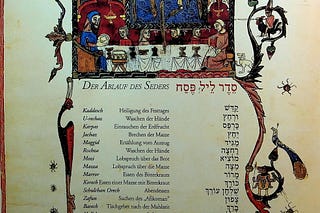 DER ABLAUF DES SEDERS סדר ליל פסח
Kaddesch Heiligung des Festtages קַדֵּשׁ
U-rechaz Waschen der Hände וּרְחַץ
Karpas Eintauchen der Erdfrucht כַּרְפַּס
Jachaz Brechen der Mazze יַחַץ
Maggid Erzählung vom Auszug מַגִּיד
Rochza Waschen der Hände רָחְצָה
Mozi Lobspruch über das Brot מוֹצִיא
Mazza Lobspruch über die Mazza מַצָּה
Marror Essen des Bitterkrauts מָרוֹר
Korech Essen einer Mazze mit Bitterkraut כּוֹרֵךְ
Schulchan Orech Abendessen שֻׁלְחָן עוֹרֵךְ
Zafun Suchen des „Afikoman" צָפוּן
Barech Tischgebet nach der Mahlzeit בָּרֵךְ